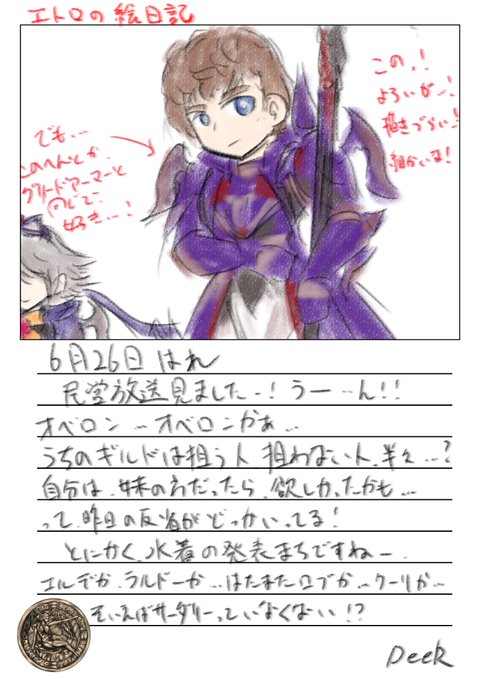 エトロの絵日記
この..!
よろいが...!
描きづらい..!
細かいな!
でも...
このへんとか
グリードアーマーと
同じで
好き...!
6月26日 はれ
民営放送見ました...! うー...ん!!
オベロン...オベロンかぁ...
うちのギルドは狙う人、狙わない人、半々...?
自分は、妹のわだったら、欲しかったかも...
って、昨日の反省がどっかいってる!
とにかく、水着の発表まちですねー
エルデか、ラルドーか...はたまたロブか...クーリか...
そいえばサータリーっていなくない!?
Deek